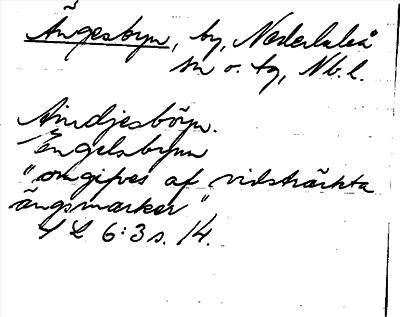 Ängesbyn, by, Nederluleå
sn o. tg, Nb. l.
Aindjesböyn.
Engelsbynn
"omgifves af vidsträckta
ängsmarker"
SL 6:3 s. 14.